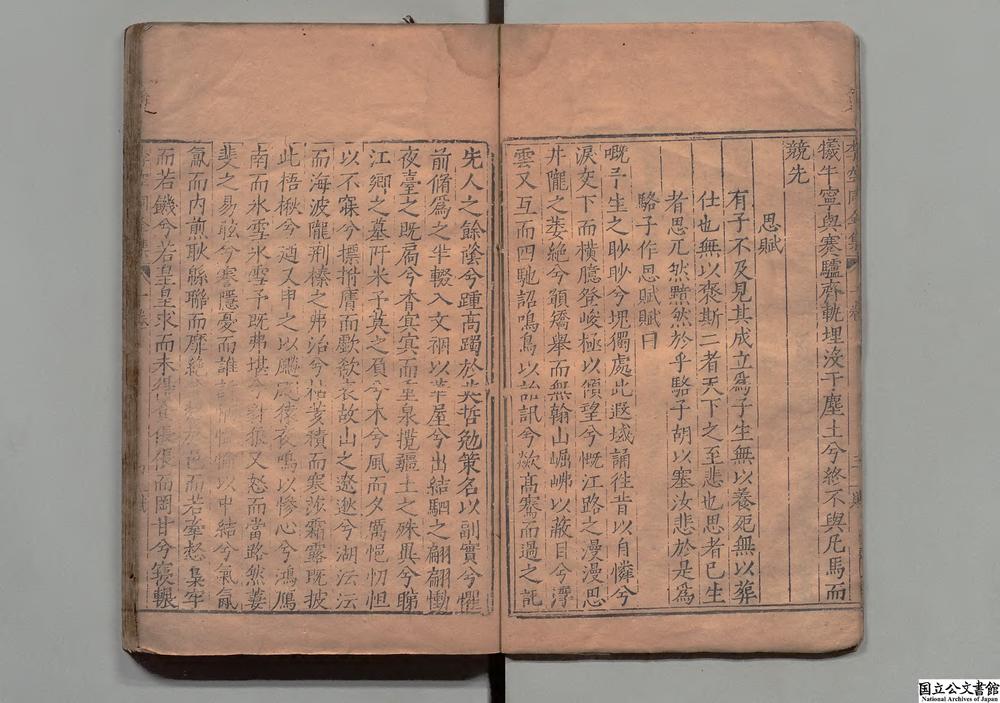 犧牛寧與蹇驢齊軌埋沒乎塵土兮終不與凡馬而
競先
思賦
有子不及見其成立爲子生無以養死無以葬
仕也無以褒斯二者天下之至悲也思者已生
者思兀然黯然於乎駱子胡以塞汝悲於是爲
駱子作思賦賦曰
嘅予生之眇眇兮塊獨處此遐域誦往昔以自憐兮
淚交下而橫臆登峻極以傾望兮慨江路之漫漫思
井隴之萎絕兮顧矯舉而無翰山崛岪以蔽目兮灣
雲又互而四馳詔鳴鳥以訊兮欻高騫而過之託
先人之餘蔭兮踵高躅於英哲勉策名以副實兮懼
前脩爲之半輟入文裀以華屋兮出結駟之翩翩慟
夜臺之既扃兮杳冥冥而重泉攬疆土之殊異兮睇
江鄉之墓阡米予莫之負兮木兮風而夕厲悒忉怛
以不寐兮摽拊膺而歔欷哀故山之遼逖兮湖沄沄
而海波隴荆榛之弗治兮枯荄積而寒莎霜露既披
此梧楸兮又申之以飈風猿夜鳴以慘心兮鴻鴈
南而冰雪冰雪予既弗堪兮豺狼又怒而當路然萋
斐之易眩兮蹇隱憂而誰以中結兮氣氤
氳而內煎耿緜聯而靡絕而若牽愁梟牢
而若饑兮若皇皇求而未得倀倀而罔甘兮寢輾
國立公文書館
National Archives of Japan